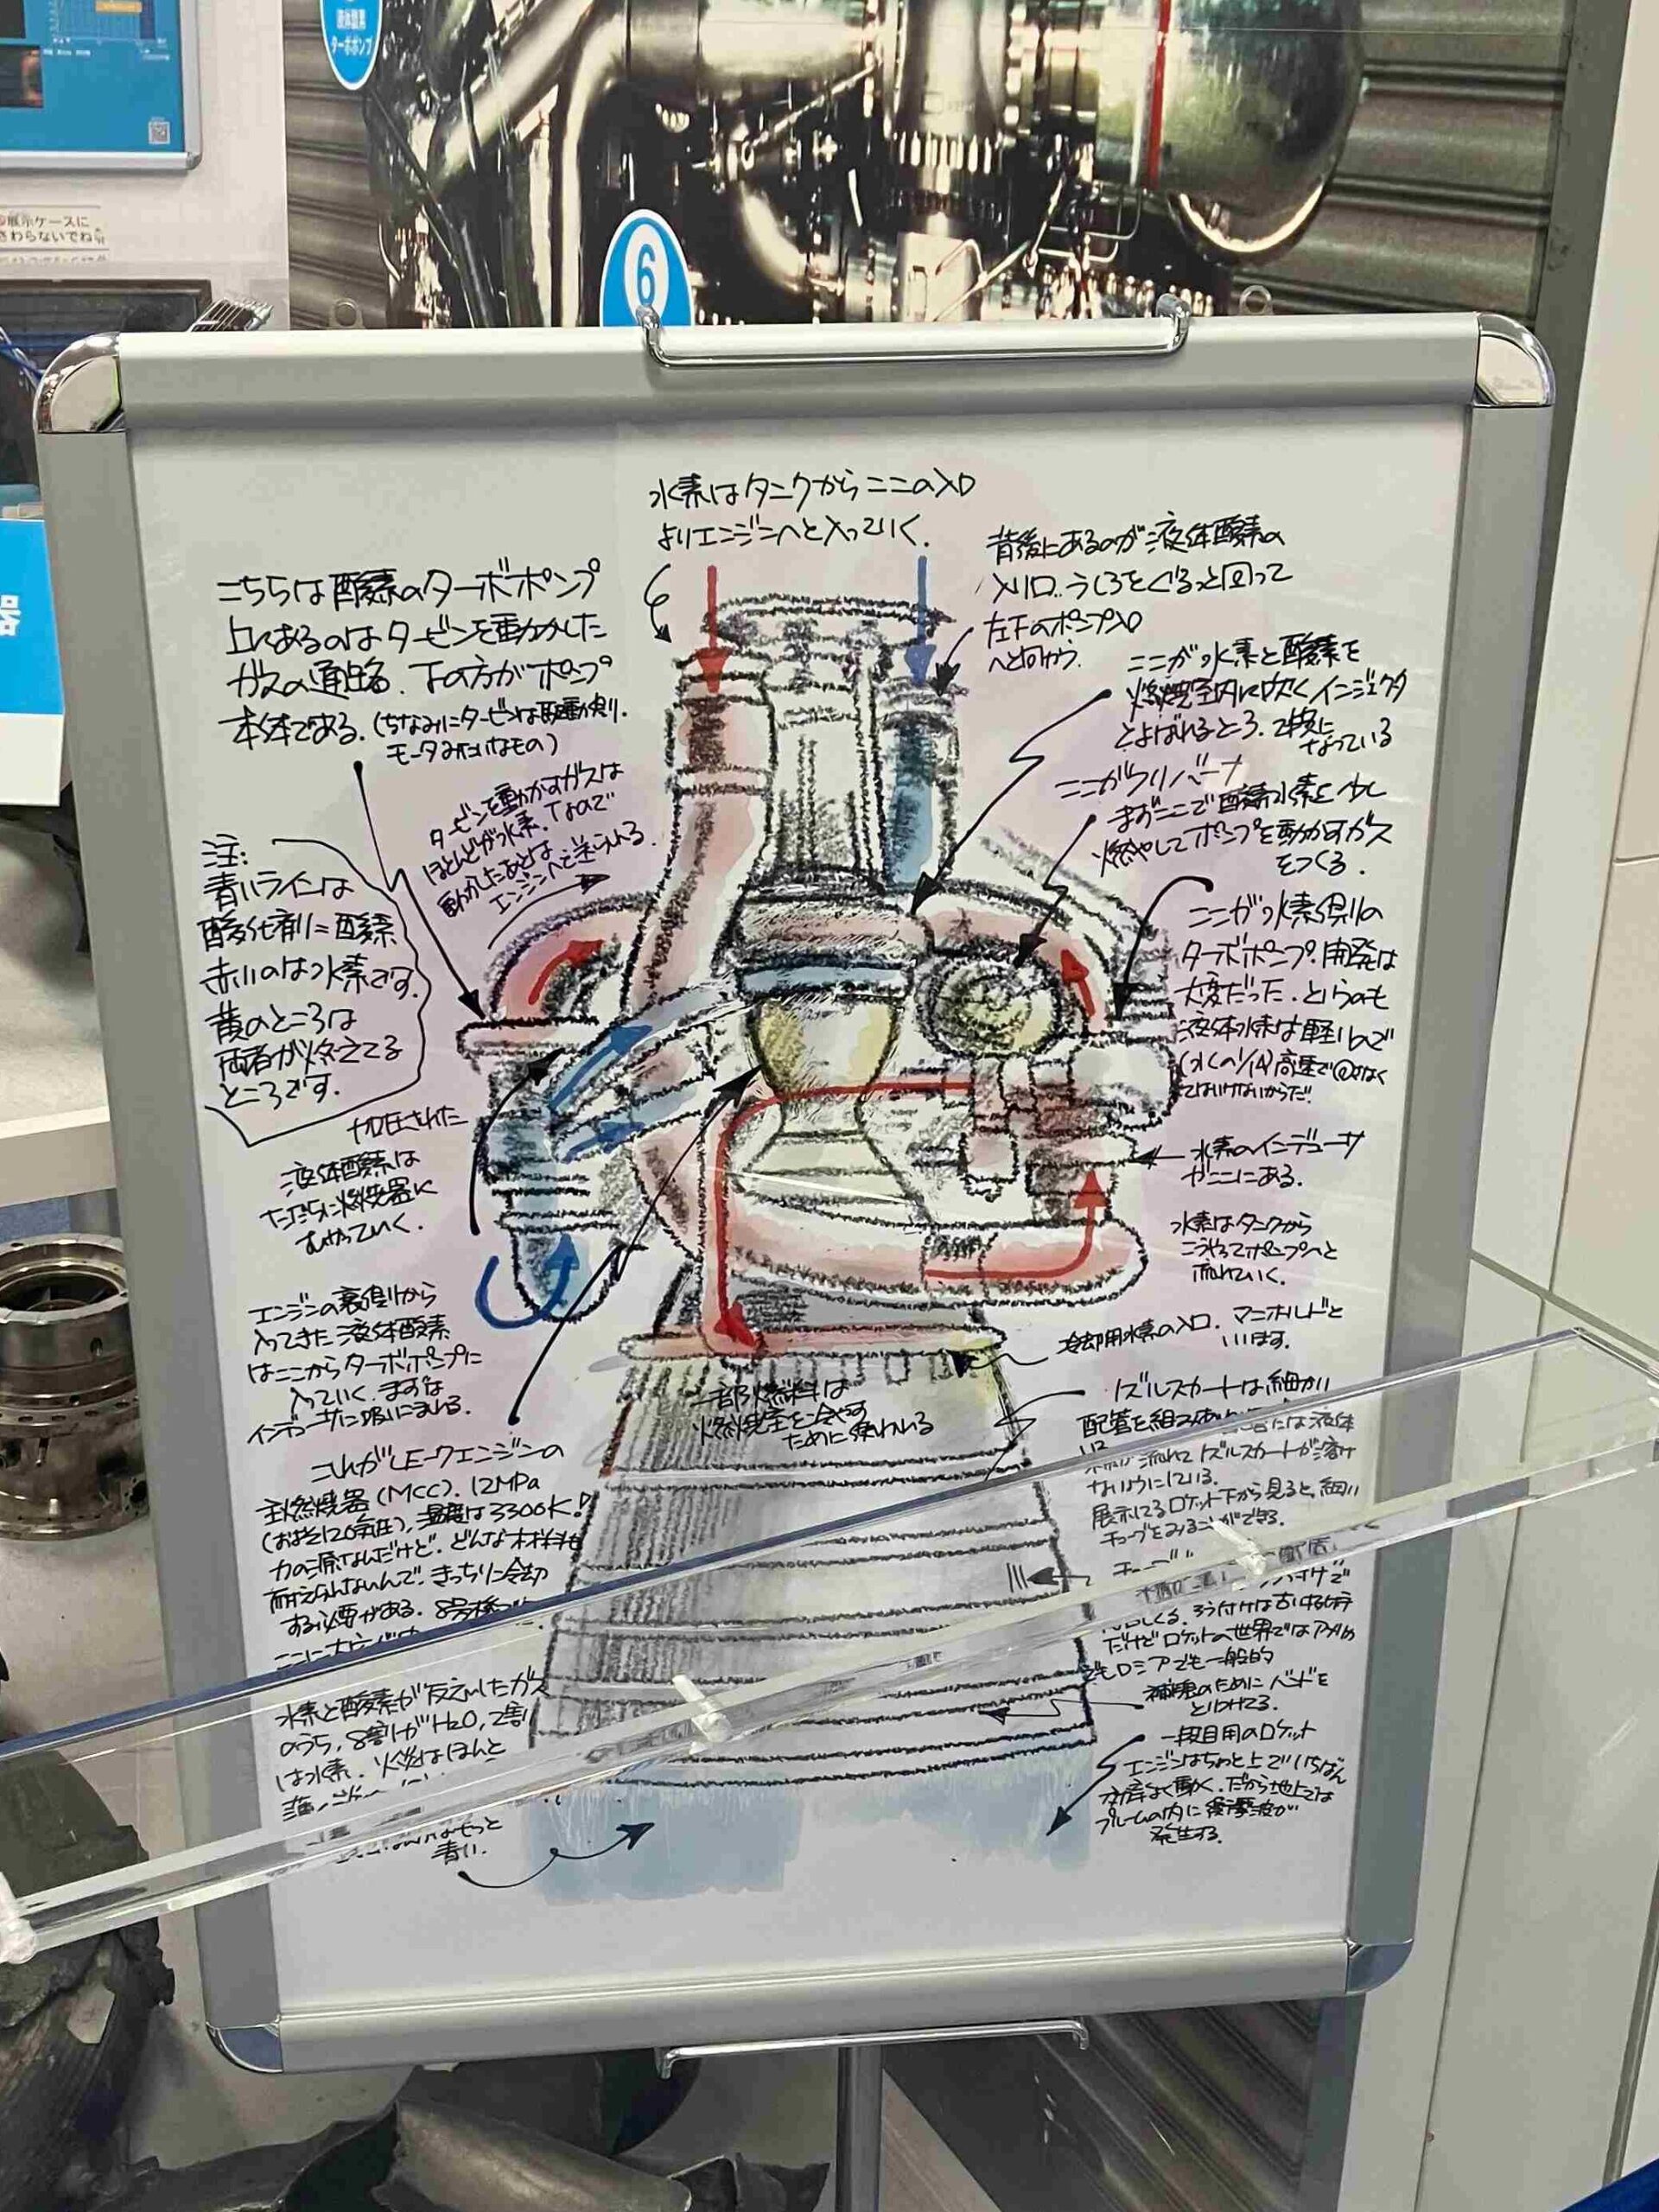 液体酸素
ターボポンプ
展示ケースに
さわらないでね
6
水素はタンクからここの入口
よりエンジンへと入っていく.
背後にあるのが液体酸素の
入り口.. うしろをぐるっと回って
左下のポンプ入口
へと向かう.
こちらは酸素のターボポンプ
上にあるのはタービンを動かした
ガスの通路. 下の方がポンプ
本体である. (ちなみにタービンは駆動側.
モータみたいなもの)
ここが水素と酸素を
燃焼室内に吹くインジェクタ
とよばれるところ. 2枚に
なっている
ここがプリバーナ
まずここで酸素水素を少し
燃やしてポンプを動かすガス
をつくる.
タービンを動かすガスは
ほとんどが水素. なので
動かしたあとは
エンジンへと送られる.
注:
青いラインは
酸化剤=酸素
赤いのは水素です.
黄のところは
両者が燃えてる
ところです.
ここが水素側の
ターボポンプ. 開発は
大変だった. というのも
液体水素は軽いので
(水の1/14) 高速で回さなく
てはいけないからだ!
加圧された
液体酸素は
ただちに燃焼器に
むかっていく.
水素のインデューサ
がここにある.
水素はタンクから
こうやってポンプへと
流れていく.
エンジンの裏側から
入ってきた液体酸素
はここからターボポンプに
入っていく. まずは
インデューサに吸いこまれる.
冷却用水素の入口. マニホルドと
いいます.
一部燃料は
燃焼室を冷やす
ために使われる
これがLE-7エンジンの
主燃焼器(MCC). 12MPa
(およそ120気圧), 温度は3300K!
力の源なんだけど. どんな材料も
耐えられないんで. きっちり冷却
する必要がある. 8号機
ここに大
ノズルスカートは細かい
配管を組みあ には液体
流れて ノズルスカートが溶け
ないようにしている.
展示してるロケット下から見ると, 細い
チューブをみることができる.
くる. ろう付けは古い技術
だけど ロケットの世界ではアメリカ
でもロシアでも一般的
補強のために バンドを
とりつけてる.
水素と酸素が反応したガス
のうち, 8割がH₂O, 2割
は水素. 火炎はほんと
もっと
青い.
一段目用のロケット
エンジンはちょっと上でいちばん
効率よく働く. だから地上では
プルームの内に衝撃波が
発生する.